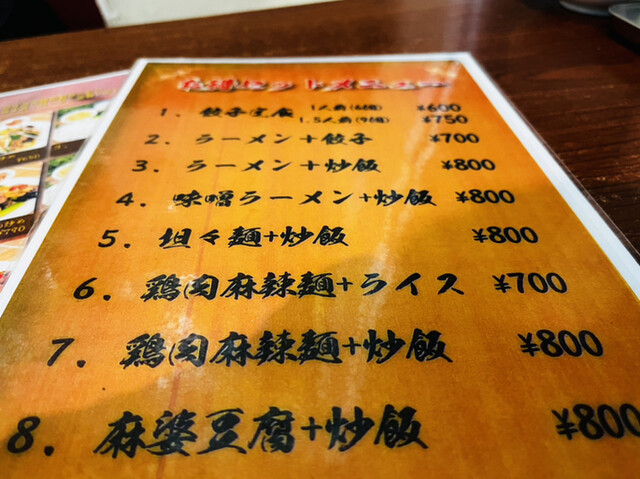 セットメニュー
1. 餃子定食 1人前(6個) ¥600
1.5人前(9個) ¥750
2. ラーメン+餃子 ¥700
3. ラーメン+炒飯 ¥800
4. 味噌ラーメン+炒飯 ¥800
5. 坦々麺+炒飯 ¥800
6. 鶏肉麻辣麺+ライス ¥700
7. 鶏肉麻辣麺+炒飯 ¥800
8. 麻婆豆腐+炒飯 ¥800